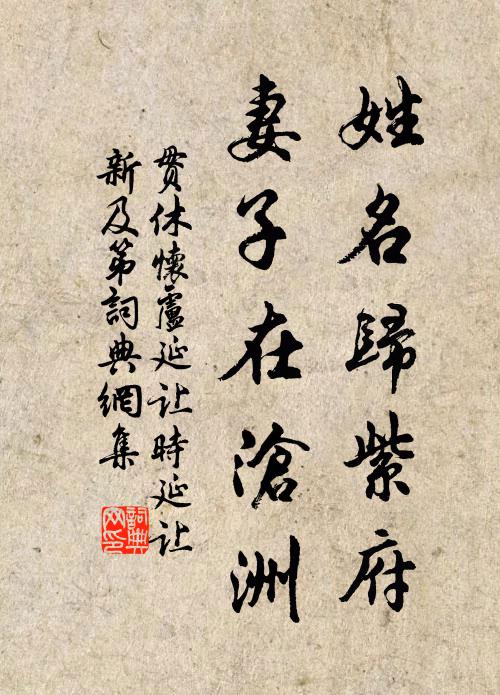 姓名歸紫府
妻子在滄洲
貫休懷盧延让時延让
新及第詞典網集
詞典网印